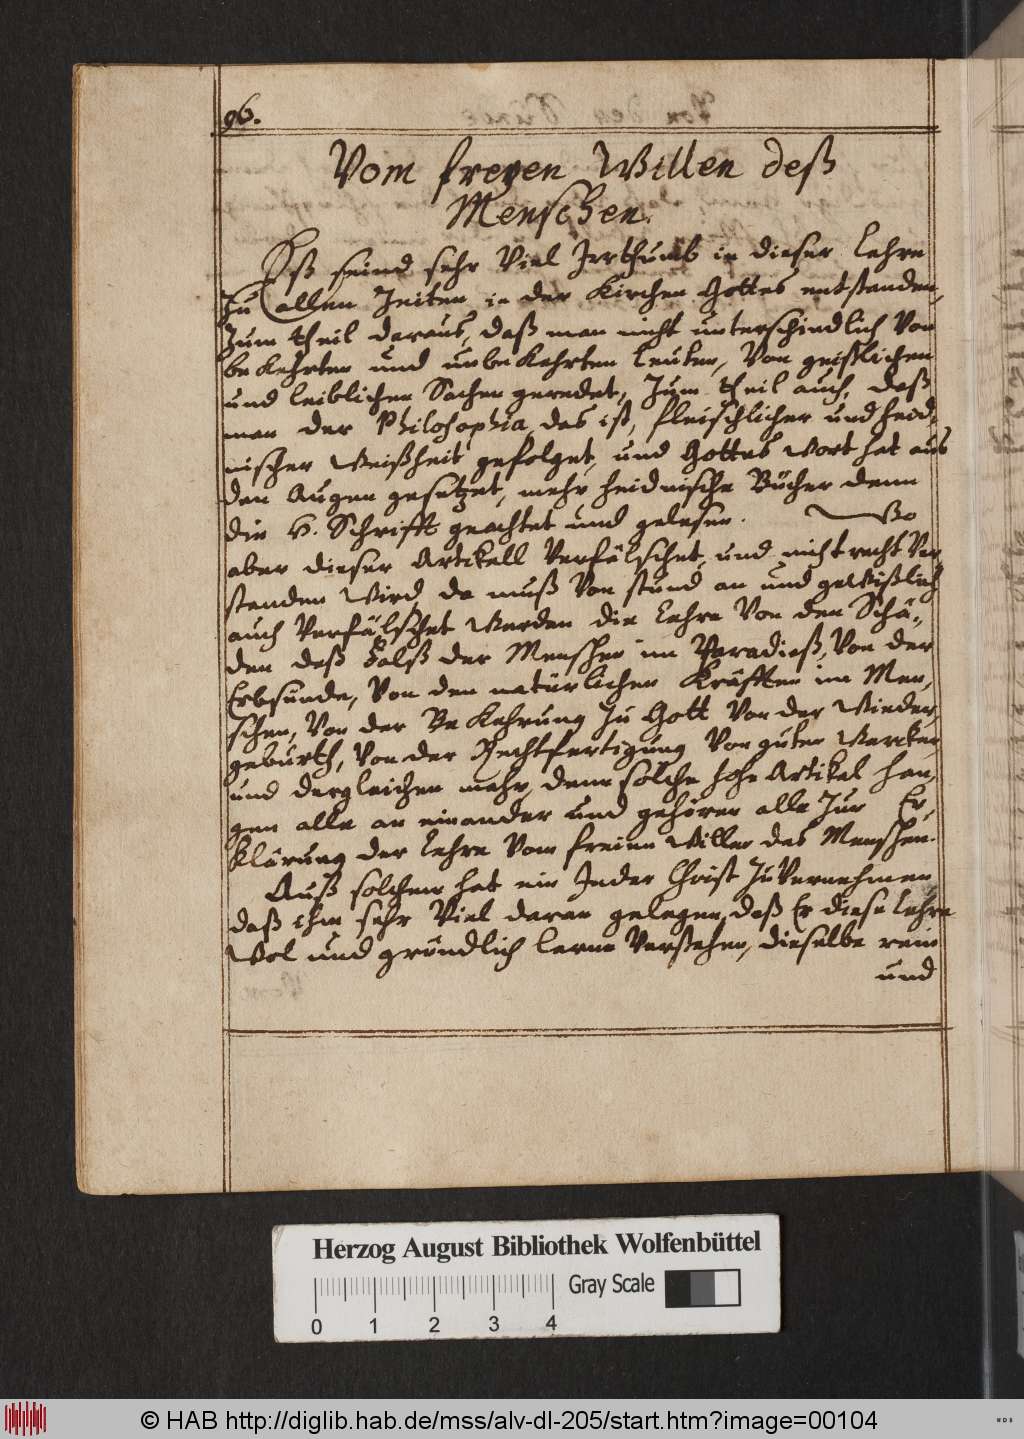 96.
Vom freyen Willen deß
Menschen.
Eß seind sehr Viel Irrthumb in dieser Lehre
Zu allen Zeiten in der Kirchen Gottes entstanden,
Zum theil daraus, daß man nicht unterschindlich Von
bekehrten und unbekehrten Leuten, Von geistlichen
und leiblichen Sachen geredet, Zum theil auch, daß
man der Philosophia, das ist, fleischlicher und heid,
nischer Weißheit gefolget, und Gottes Wort hat aus
den Augen gesetzet, mehr heidnische Bücher denn
die H. Schrifft geachtet und gelesen. Wo
aber dieser Artickell Verfälschet, und nicht recht Ver
standen Wird da muß Von stund an und gewißlich
auch Verfälschet Werden die Lehre Von den Schä,,
den deß Falß der Menschen im Paradieß, Von der
Erbsünde, Von den natürlichen Kräfften im Men,
schen, Von der Bekehrung Zu Gott Von der Wieder,
geburth, Von der Rechtfertigung Von guten Wercken
und dergleichen mehr, denn solche hohe Artikel han,
gen alle an einander und gehören alle Zur Er,
klärung der Lehre Vom freien Willen des Menschen.
Auß solchem hat ein Jeder Christ Zu Vernehmen
daß ihm sehr Viel daran gelegen, daß Er diese Lehre
Wol und gründlich lerne Verstehen, dieselbe rein
und
Herzog August Bibliothek Wolfenbüttel
Gray Scale
0 1 2 3 4
© HAB http://diglib.hab.de/mss/alv-dl-205/start.htm?image=00104